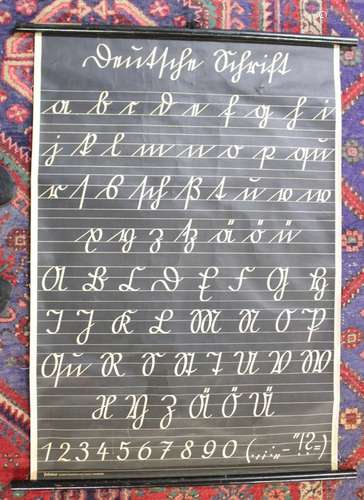 Deutsche Schrift
a b c d e f g h i
j k l m n o p qu
r ſ s ſch ß t u v w
x y z tz ä ö ü
A B C D E F G H
I J K L M N O P
Qu R S St T U V W
X Y Z Ä Ö Ü
1 2 3 4 5 6 7 8 9 0 (.,:;–"!?=)